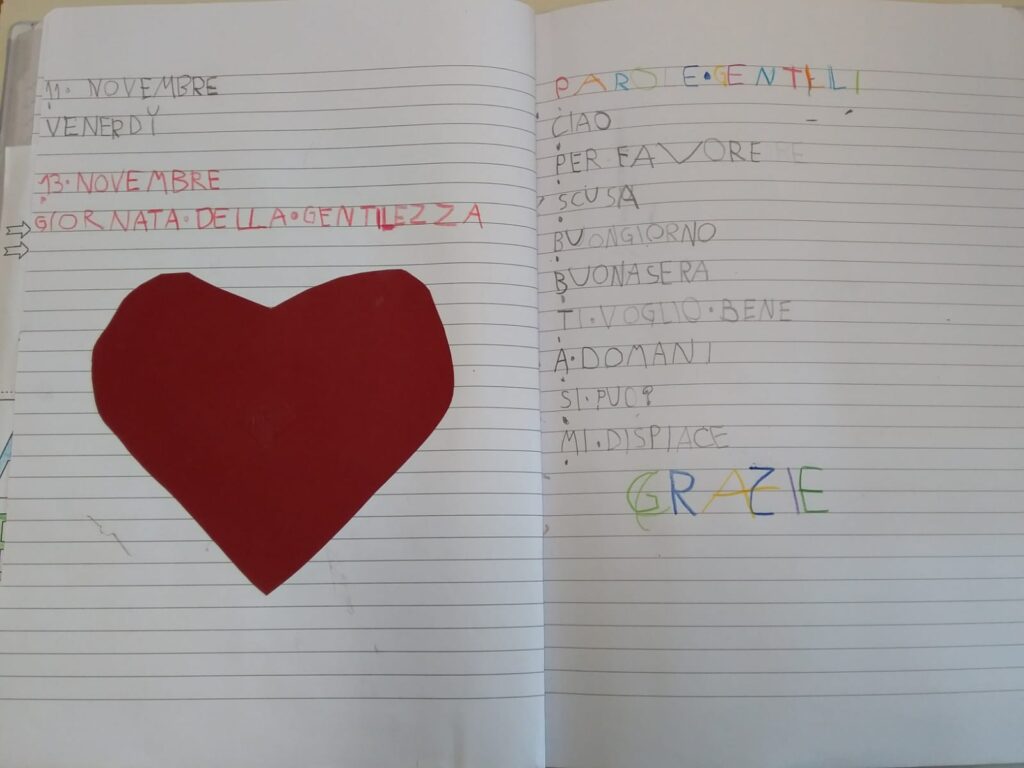 11. NOVEMBRE
VENERDÌ
13·NOVEMBRE
GIORNATA·DELLA·GENTILEZZA
PAROLE·GENTILI
CIAO
PER FAVORE
SCUSA
BUONGIORNO
BUONASERA
TI·VOGLIO·BENE
A·DOMANI
SI·PUO?
MI·DISPIACE
GRAZIE